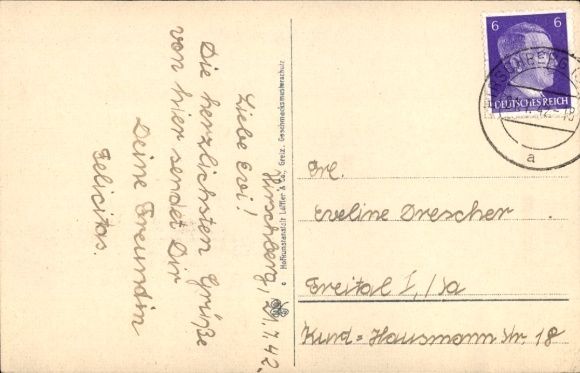 Hirschberg, 21.7.42.
Liebe Evi!
Die herzlichsten Grüße
von hier sendet Dir
Deine Freundin
Felicitas.
Hofkunstanstalt Löffler & Co., Greiz. Geschmacksmusterschutz
6 6
DEUTSCHES REICH
a
Frl.
Eveline Drescher
Freital I, /Sa
Kurd-Hausmann Str. 18